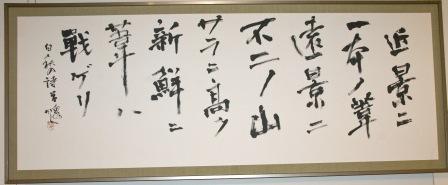 近景ニ
一本ノ葦
遠景ニ
不二ノ山
サラニ高ク
新鮮ニ
葦ハ
戦ゲリ
白秋の詩